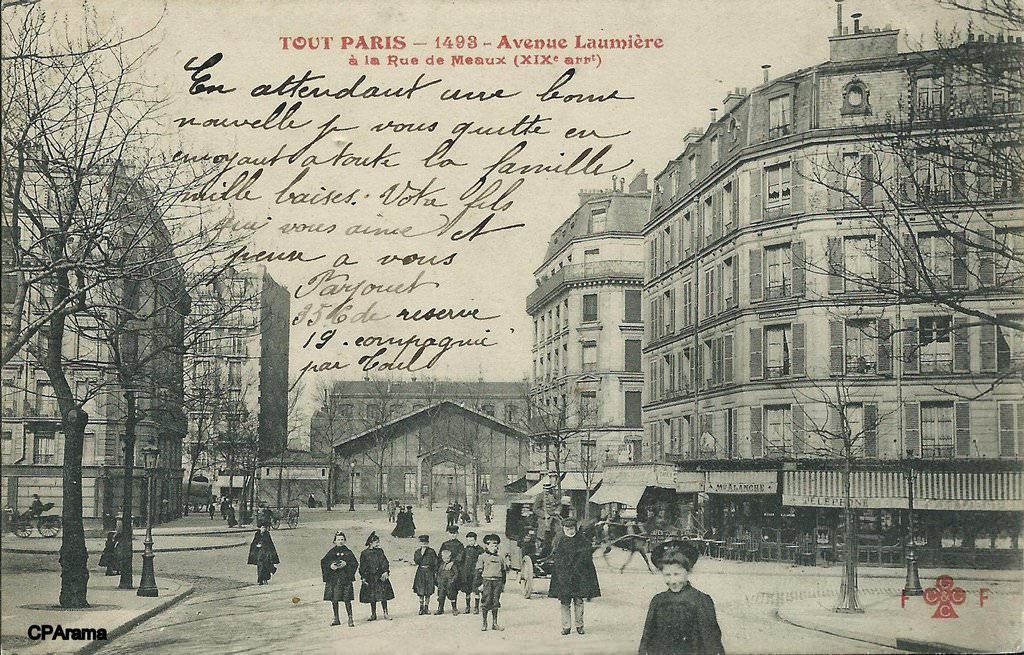 TOUT PARIS - 1493 - Avenue Laumière
à la Rue de Meaux (XIXe arrt)
En attendant une bonne
nouvelle je vous quitte en
envoyant a toute la famille
mille baises. Votre fils
qui vous aime et
pense a vous
35 de reserve
19. compagnie
par Toul
MON BLANCHE
TELEPHONE
F F
C
C&C
C
CPArama